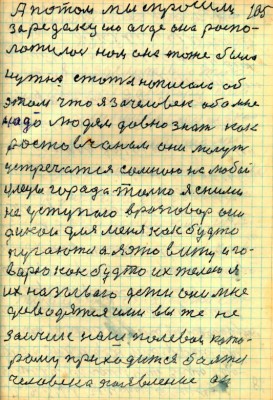 А потом мы спросили 105
за редакцию а где она распо-
ложилась нам она тоже было
нужна хотя написала об
этом что я за человек обо мне
надо людям давно знат как
ростовчанам они могут
встречатся со мною на любой
улице города только я с ними
не уступаю в разговор они
дикои для меня как будто
пугаются а я это вижу и го-
варю как будто их телю я
их называю дети они мне
доводятся или вы же не
зайчик наш полевой кото-
рому приходится боятся
человека появление